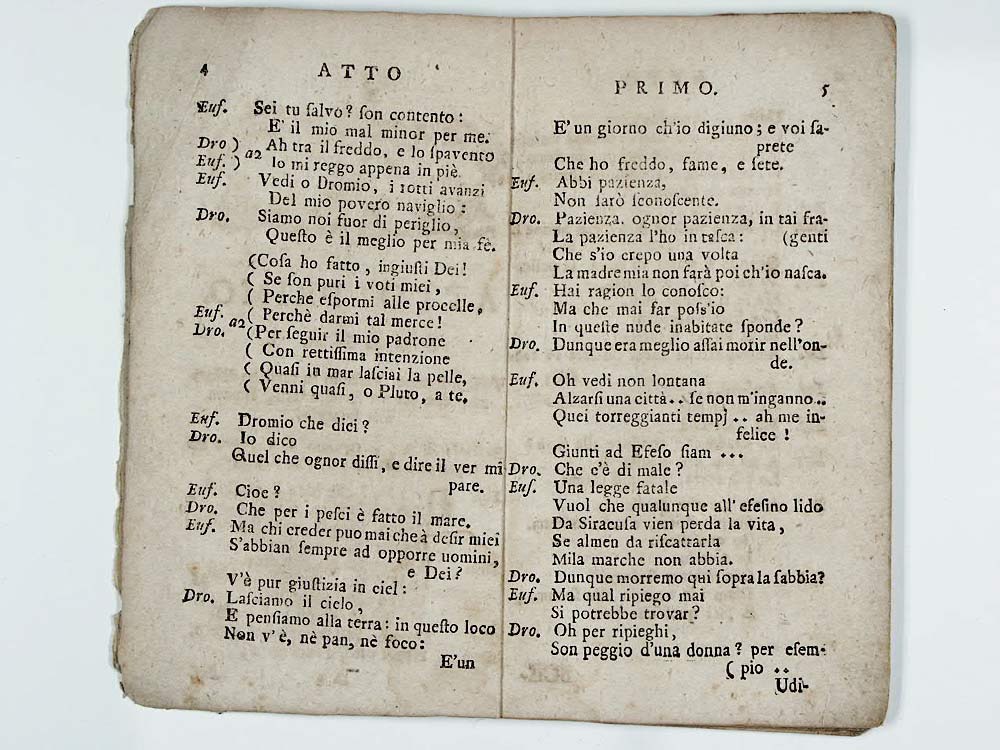 4 ATTO
Euf. Sei tu ſalvo? ſon contento:
E' il mio mal minor per me.
Dro ) a2 Ah tra il freddo, e lo ſpavento
Euf. ) Io mi reggo appena in piè.
Euf. Vedi o Dromio, i rotti avanzi
Del mio povero naviglio:
Dro. Siamo noi fuor di periglio,
Queſto è il meglio per mia fè.
(Coſa ho fatto, ingiuſti Dei!
( Se ſon puri i voti miei,
( Perche eſpormi alle procelle,
Euf. ( Perchè darmi tal merce!
Dro. a2 (Per ſeguir il mio padrone
( Con rettiſſima intenzione
( Quaſi in mar laſciai la pelle,
( Venni quaſi, o Pluto, a te.
Euf. Dromio che dici?
Dro. Io dico
Quel che ognor diſſi, e dire il ver mi
pare.
Euf. Cioe?
Dro. Che per i peſci è fatto il mare.
Euf. Ma chi creder puo mai che à deſir miei
S'abbian ſempre ad opporre uomini,
e Dei?
V'è pur giuſtizia in ciel:
Dro. Laſciamo il cielo,
E penſiamo alla terra: in queſto loco
Non v'è, nè pan, nè foco:
E'un
PRIMO. 5
E' un giorno ch'io digiuno; e voi ſa-
prete
Che ho freddo, fame, e ſete.
Euf. Abbi pazienza,
Non ſarò ſconoſcente.
Dro. Pazienza. ognor pazienza, in tai fra-
La pazienza l'ho in taſca: (genti
Che s'io crepo una volta
La madre mia non farà poi ch'io naſca.
Euf. Hai ragion lo conoſco:
Ma che mai far poſs'io
In queſte nude inabitate ſponde?
Dro. Dunque era meglio aſſai morir nell'on-
de.
Euf. Oh vedi non lontana
Alzarſi una città .. ſe non m'inganno ..
Quei torreggianti tempj .. ah me in-
felice!
Giunti ad Efeſo ſiam ...
Dro. Che c'è di male?
Euf. Una legge fatale
Vuol che qualunque all' efeſino lido
Da Siracuſa vien perda la vita,
Se almen da riſcattarla
Mila marche non abbia.
Dro. Dunque morremo qui ſopra la ſabbia?
Euf. Ma qual ripiego mai
Si potrebbe trovar?
Dro. Oh per ripieghi,
Son peggio d'una donna? per eſem-
( pio ..
Udi-